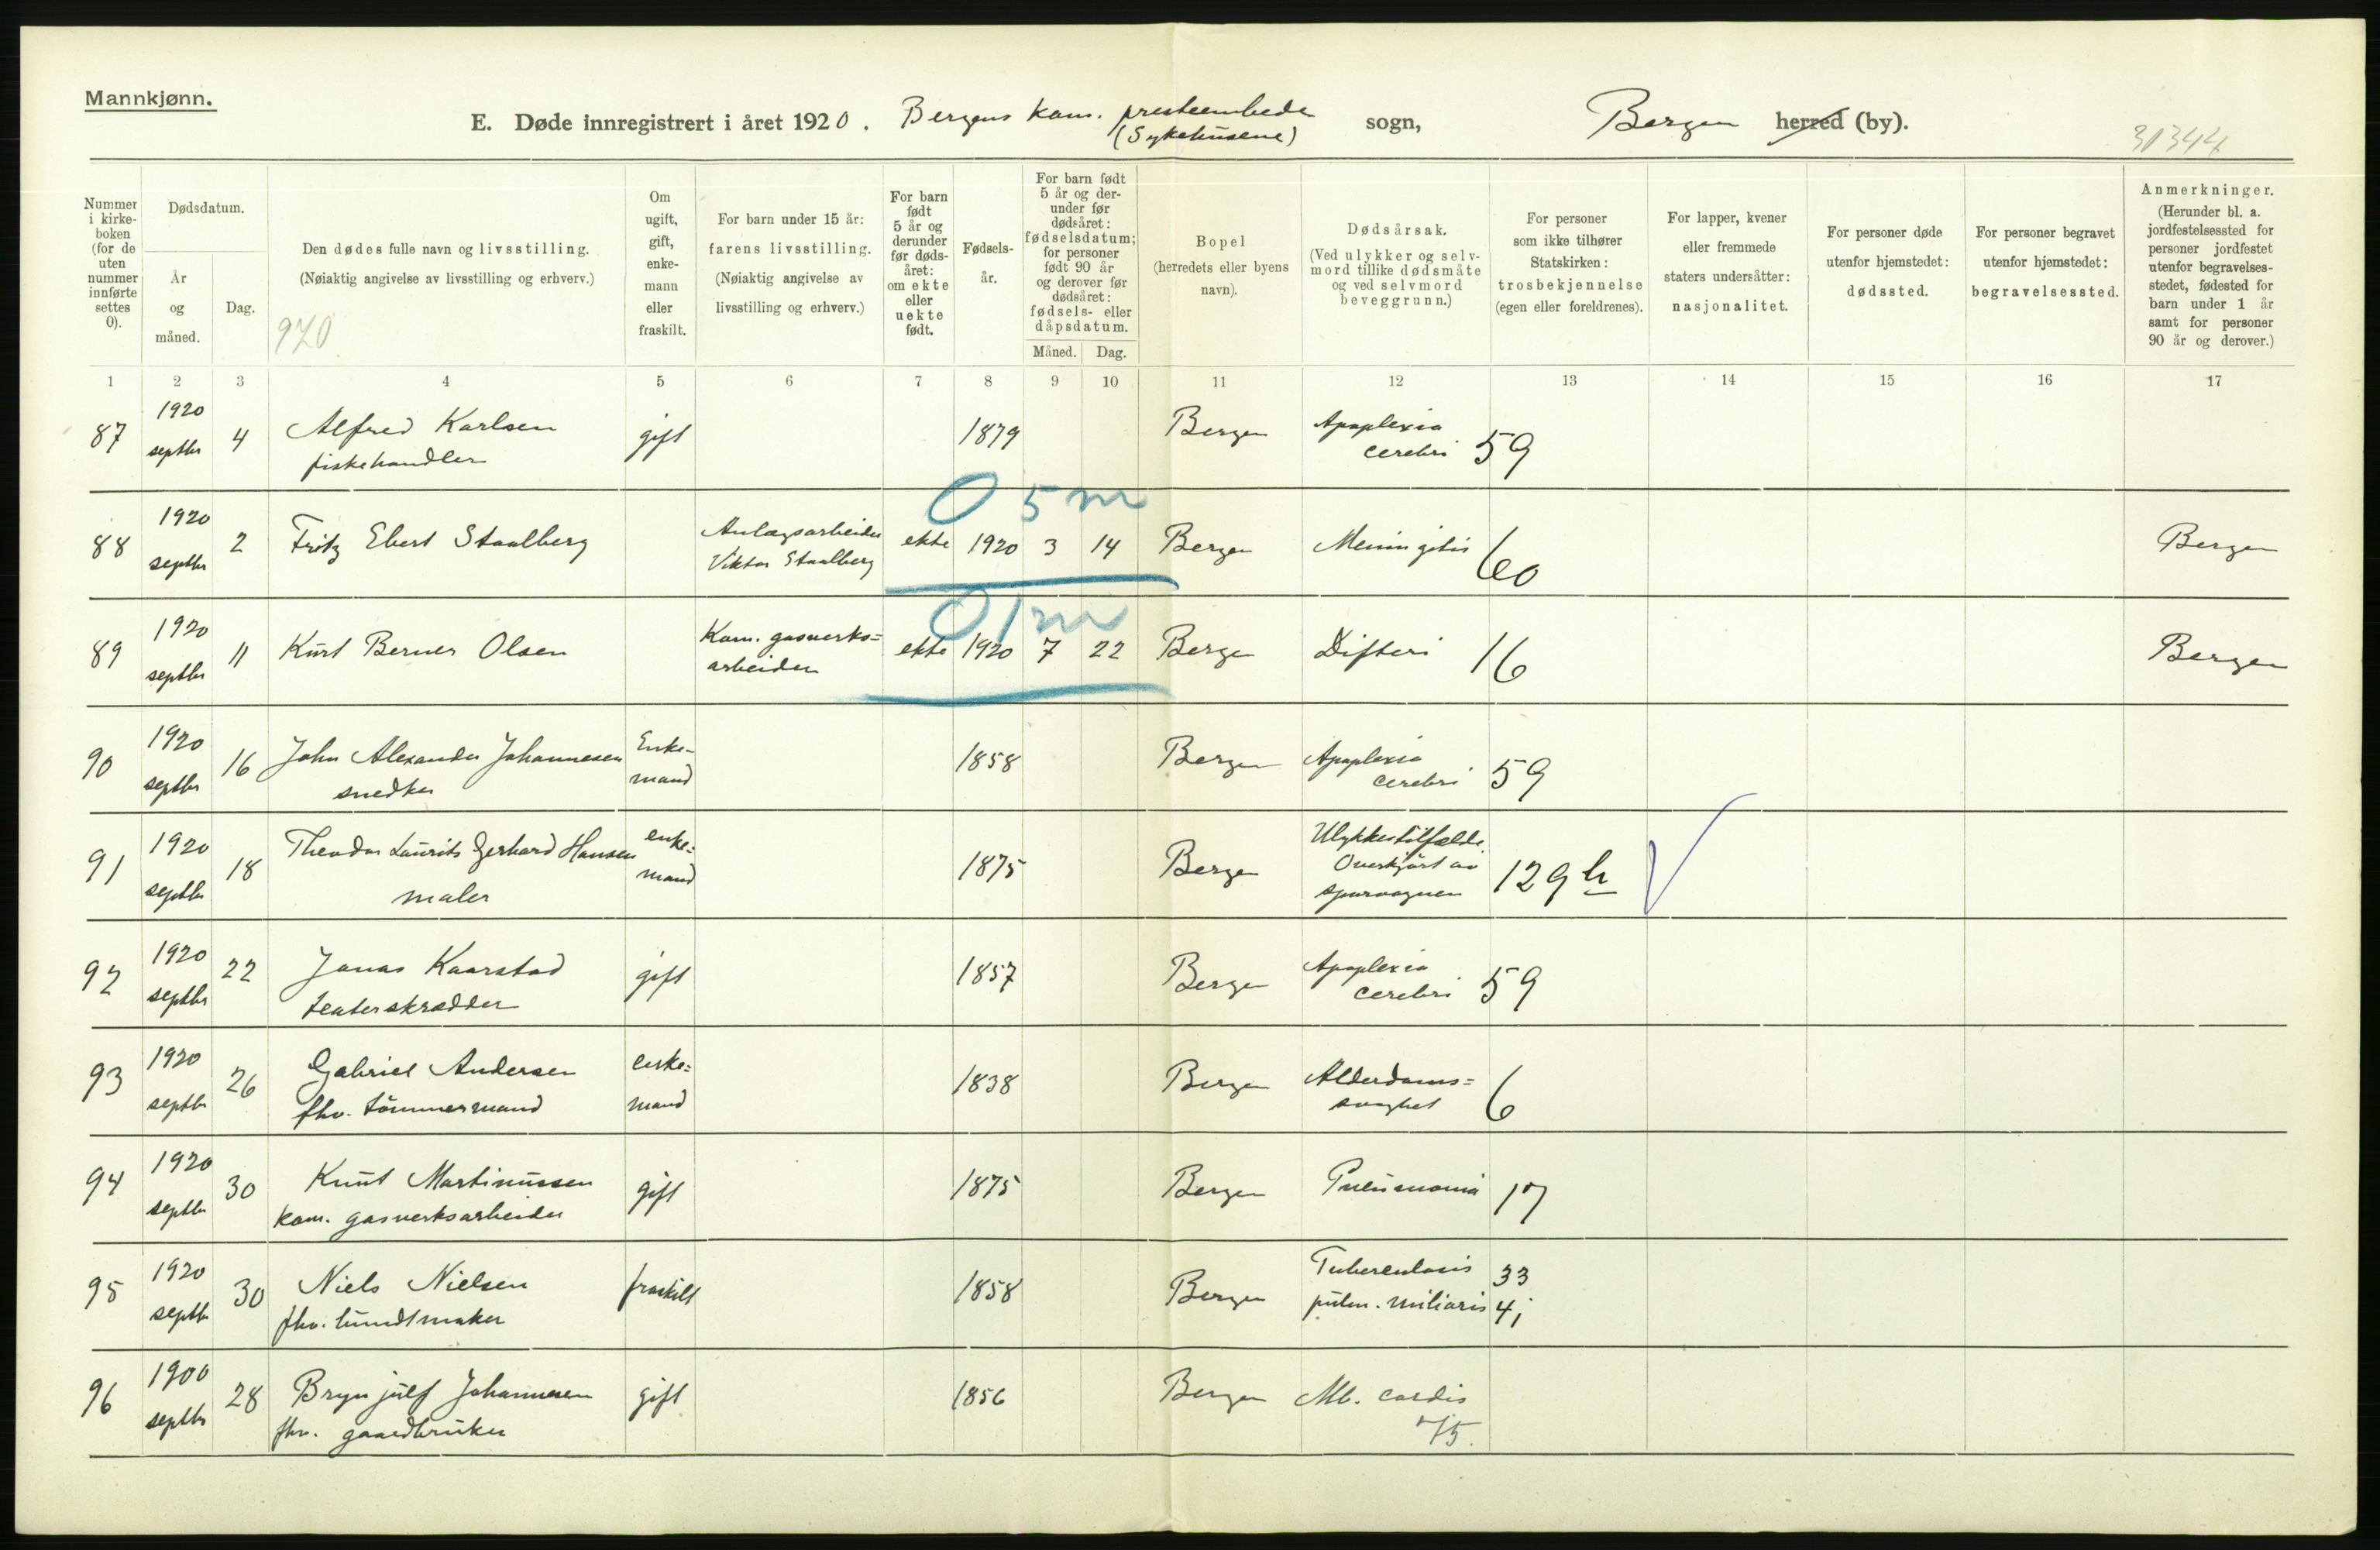 Mannkjønn.
E. Døde innregistrert i året 1920. Bergens kom. presteembede (Sykehusene) sogn, Bergen herred (by).
31344
Nummer i kirkeboken (for de uten nummer innførte settes 0).
Dødsdatum.
År og måned.
Dag.
Den dødes fulle navn og livsstilling.
(Nøiaktig angivelse av livsstilling og erhverv.)
920
Om ugift, gift, enkemann eller fraskilt.
For barn under 15 år: farens livsstilling.
(Nøiaktig angivelse av livsstilling og erhverv.)
For barn født 5 år og derunder før dødsåret: om ekte eller uekte født.
Fødselsår.
For barn født 5 år og derunder før dødsåret: fødselsdatum; for personer født 90 år og derover før dødsåret: fødsels- eller dåpsdatum.
Måned. Dag.
Bopel (herredets eller byens navn).
Dødsårsak.
(Ved ulykker og selvmord tillike dødsmåte og ved selvmord beveggrunn.)
For personer som ikke tilhører Statskirken: trosbekjennelse (egen eller foreldrenes).
For lapper, kvener eller fremmede staters undersåtter: nasjonalitet.
For personer døde utenfor hjemstedet: dødssted.
For personer begravet utenfor hjemstedet: begravelsessted.
Anmerkninger.
(Herunder bl. a. jordfestelsessted for personer jordfestet utenfor begravelsesstedet, fødested for barn under 1 år samt for personer 90 år og derover.)
1 2 3 4 5 6 7 8 9 10 11 12 13 14 15 16 17
87 1920 septbr 4 Alfred Karlsen fiskehandler gift 1879 Bergen Apoplexia cerebri 59
0 5 m
88 1920 septbr 2 Fritz Ebert Staalberg Anlægsarbeider Viktor Staalberg ekte 1920 3 14 Bergen Meningitis 60 Bergen
0 1 m
89 1920 septbr 11 Kurt Berner Olsen Kom. gasverks=arbeider ekte 1920 7 22 Bergen Difteri 16 Bergen
90 1920 septbr 16 John Alexander Johannesen snedker Enke-mand 1858 Bergen Apoplexia cerebri 59
91 1920 septbr 18 Theodor Laurits Gerhard Hansen maler enke=mand 1875 Bergen Ulykkestilfælde. Overkjørt av sporvognen 129 h
92 1920 septbr 22 Jonas Kaarstad teaterskrædder gift 1857 Bergen Apoplexia cerebri 59
93 1920 septbr 26 Gabriel Andersen fhv. tömmermand enke=mand 1838 Bergen Alderdoms=svaghet 6
94 1920 septbr 30 Knut Martinussen kom. gasverksarbeider gift 1875 Bergen Pneumonia 17
95 1920 septbr 30 Niels Nielsen fhv. bundtmaker fraskilt 1858 Bergen Tuberculosis pulm. miliaris 33 41
96 1900 septbr 28 Brynjulf Johannesen fhv. gaardbruker gift 1856 Bergen Mb. cordis 75.